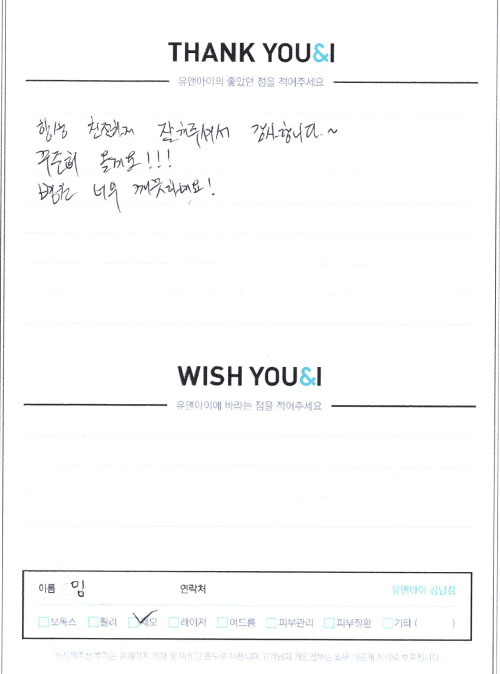 THANK YOU&I
유앤아이의 좋았던 점을 적어주세요
항상 친절하게 잘해주셔서 감사합니다.~
꾸준히 올게요!!!
병원 너무 깨끗하네요!
WISH YOU&I
유앤아이에 바라는 점을 적어주세요
이름 임 연락처 유앤아이 강남점
보톡스 필러 제모 레이저 여드름 피부관리 피부질환 기타 ( )